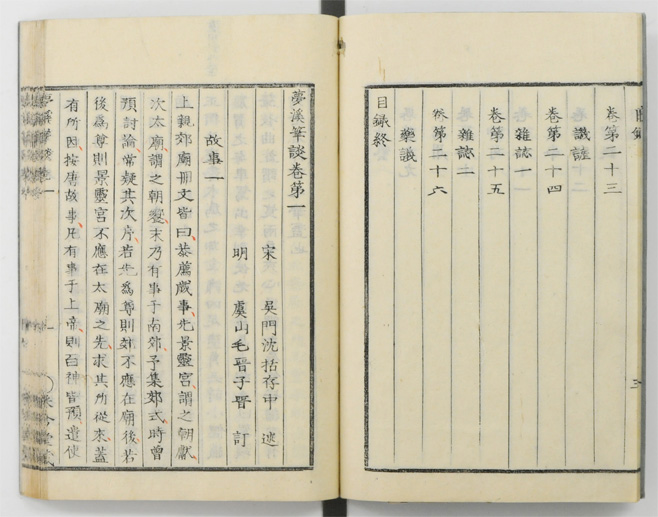 目錄
卷第二十三
譏謔
卷第二十四
雜誌一
卷第二十五
雜誌二
卷第二十六
藥議
目錄終
三
夢溪筆談卷第一
宋 吳門沈括存中 述
明 虞山毛晉子晉 訂
故事一
上親郊廟冊文皆曰恭薦歲事先景靈宮謂之朝獻
次太廟謂之朝饗末乃有事于南郊予集郊式時曾
預討論常疑其次序若先為尊則郊不應在廟後若
後為尊則景靈宮不應在太廟之先求其所從來蓋
有所因按唐故事凡有事于上帝則百神皆預遣使
夢溪筆談卷一
一